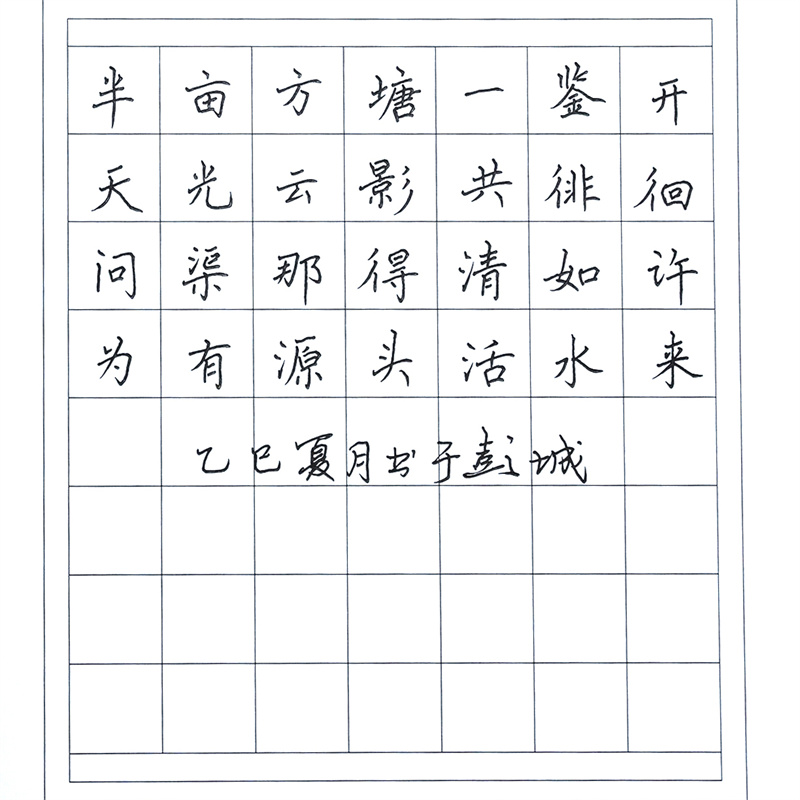 半亩方塘一鉴开
天光云影共徘徊
问渠那得清如许
为有源头活水来
乙巳夏月书于彭城